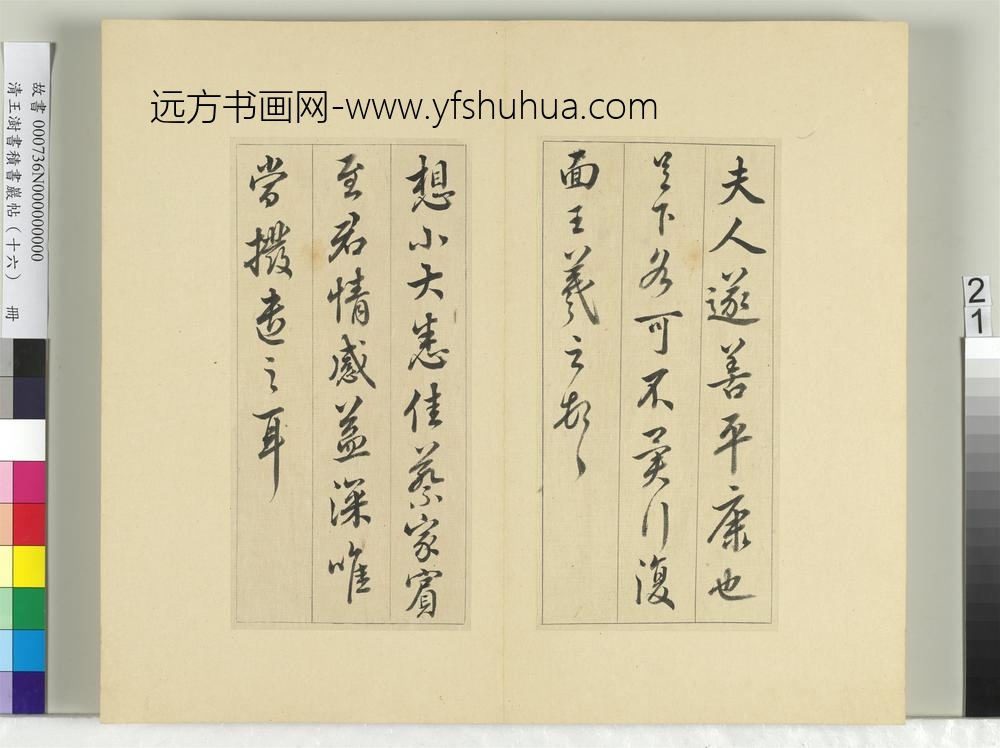 远方书画网-www.yfshuhua.com
夫人遂善平康也
足下各可不冀行復
面王羲之頓首
想小大悉佳蔡家賓
至君情感益深唯
當撥遣之耳
故書 000736N000000000
清王澍書積書巖帖（十六） 冊
2
1